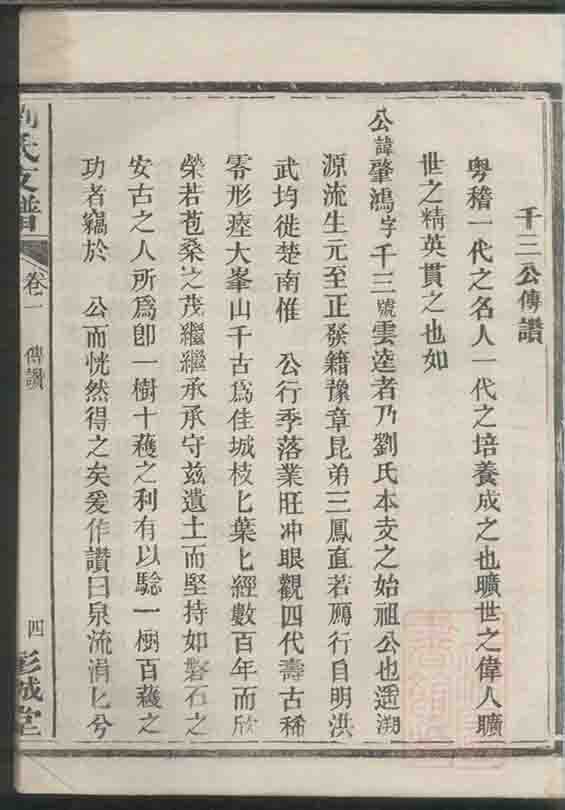 千三公傳讚
粵稽一代之名人一代之培養成之也曠世之偉人曠
世之精英貫之也如
公諱肇鴻字千三號雲逵者乃劉氏本支之始祖公也遥溯
源流生元至正發籍豫章昆弟三鳳直若鴈行自明洪
武均徙楚南惟 公行季落業旺冲眼觀四代壽古稀
零形瘞大峯山千古爲佳城枝匕葉匕經數百年而欣
榮若苞桑之茂繼繼承承守兹遺土而堅持如磐石之
安古之人所爲卽一樹十穫之利有以騐一樹百穫之
功者竊於 公而恍然得之矣爰作讚曰泉流涓匕兮
劉氏支譜
卷一 傳讚
四
彭城堂